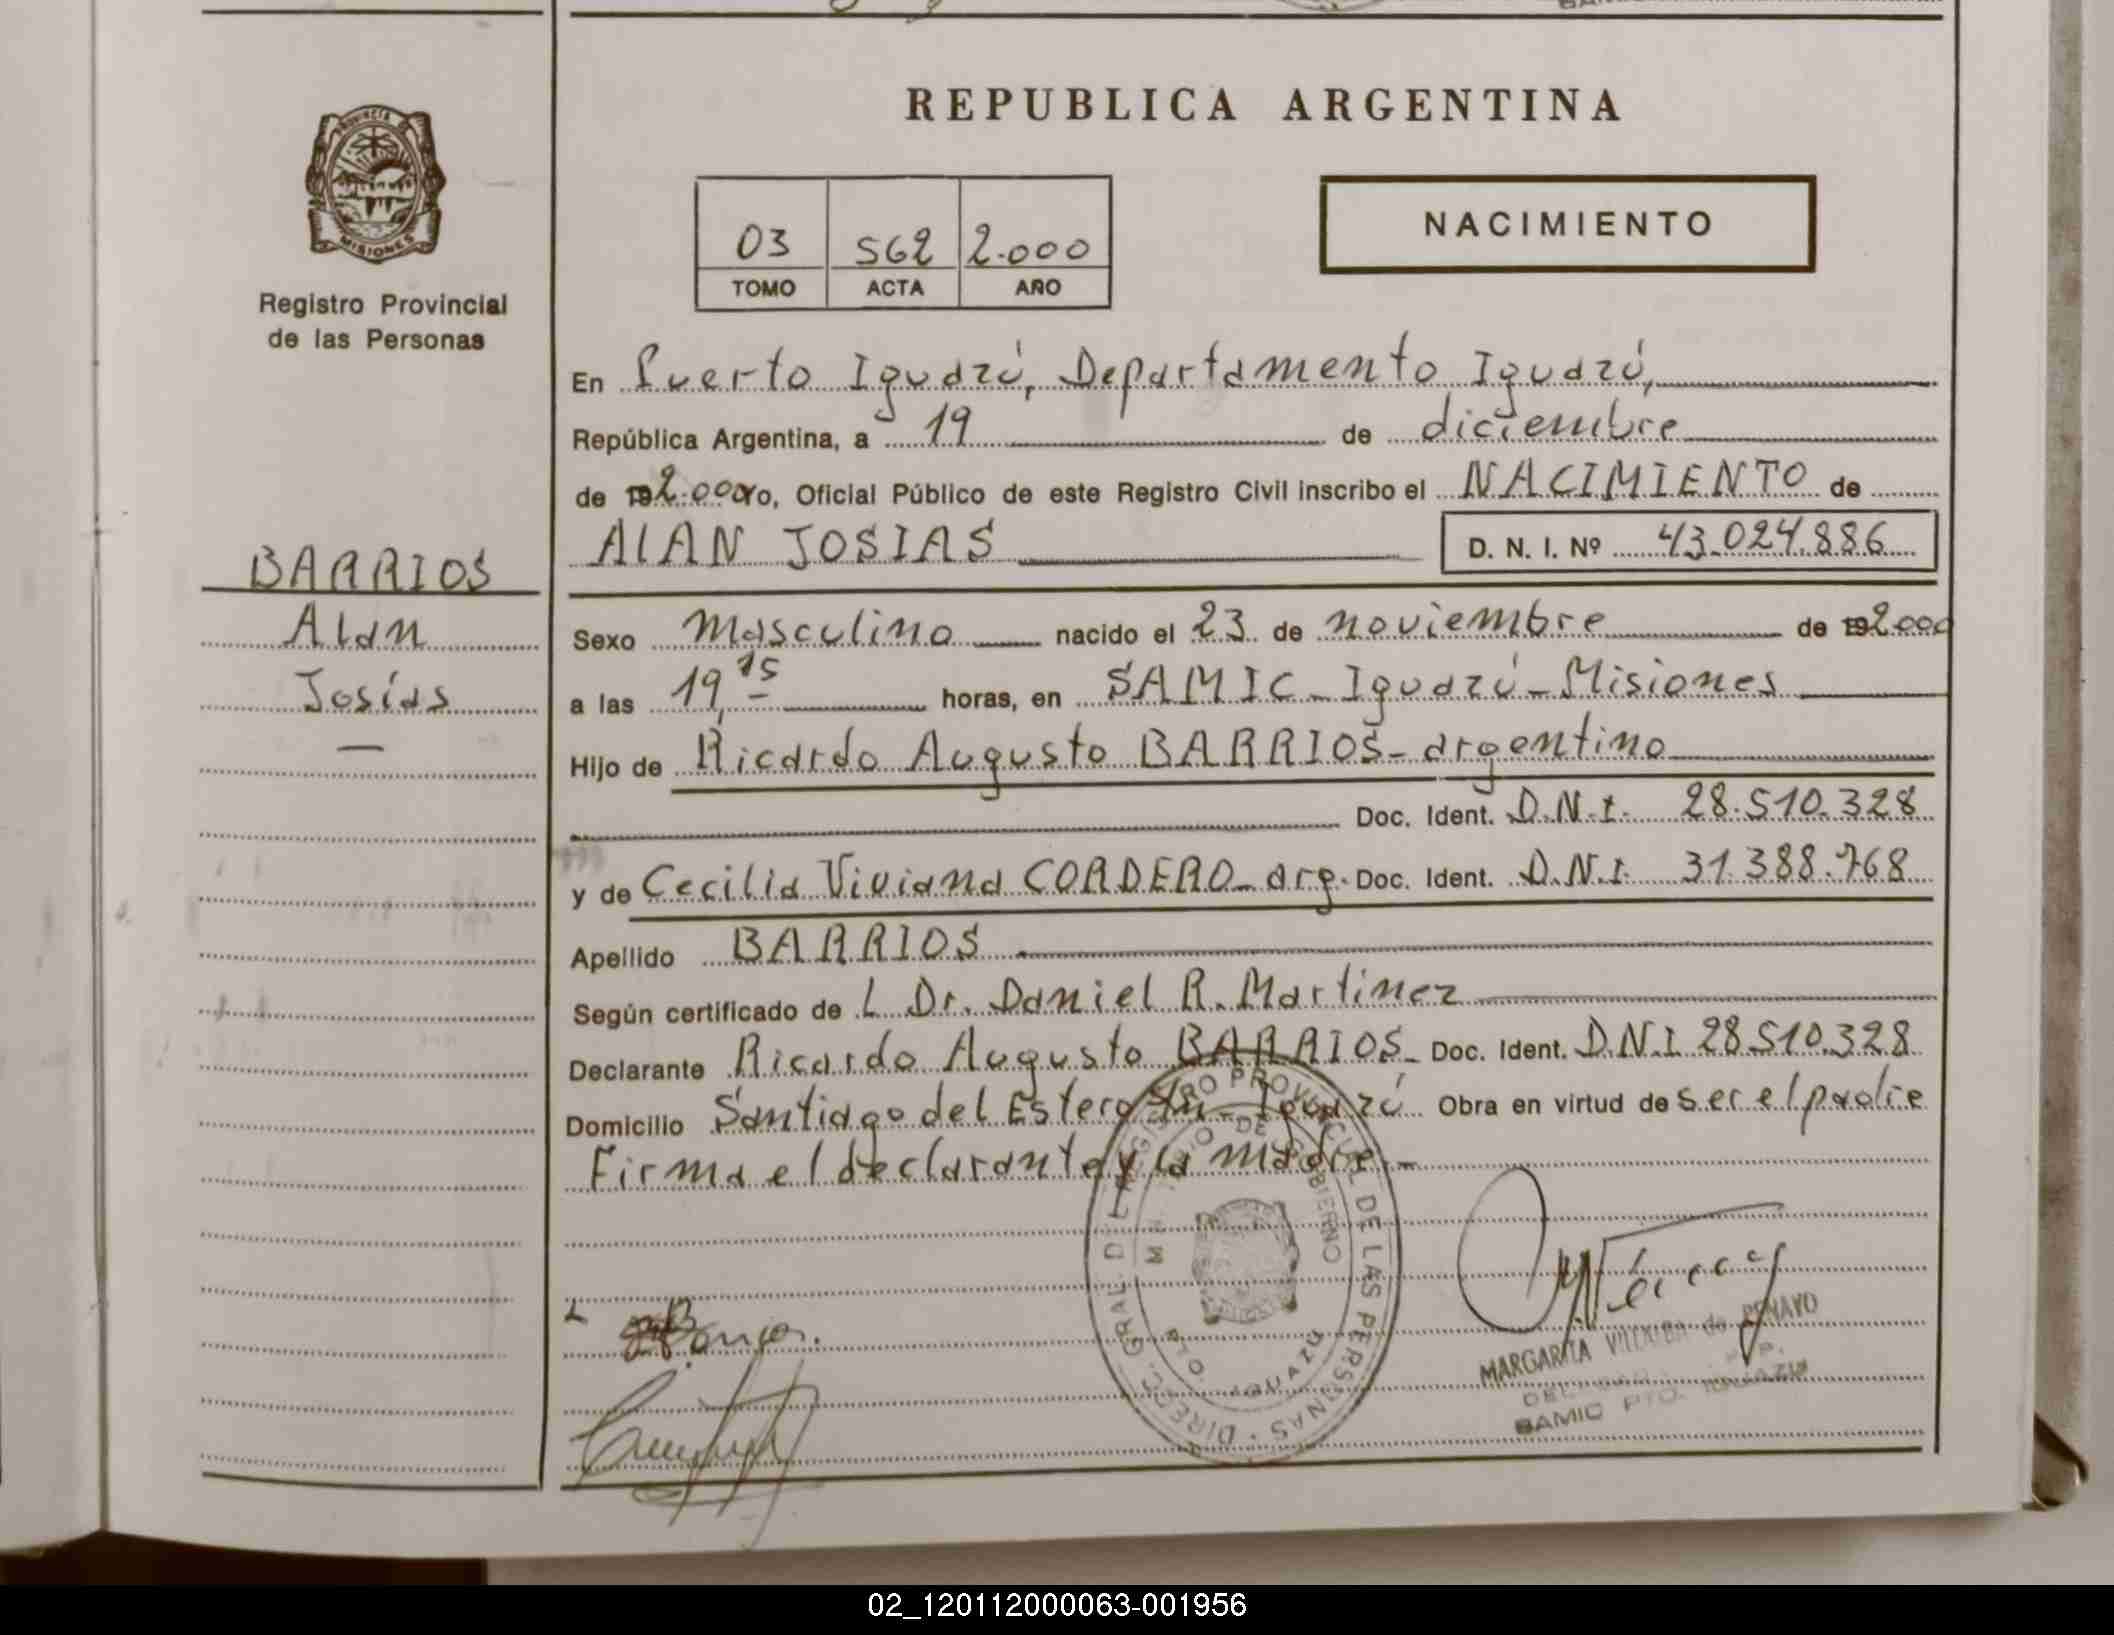 REPUBLICA ARGENTINA
PROVINCIA DE
MISIONES
Registro Provincial
de las Personas
NACIMIENTO
03 562 2.000
TOMO ACTA AÑO
En Puerto Iguazú, Departamento Iguazú,
República Argentina, a 19 de diciembre
de 192.000 yo, Oficial Público de este Registro Civil inscribo el NACIMIENTO de
AlAN JOSIAS D. N. I. Nº 43.024.886
BARRIOS
Alan
Josías
Sexo Masculino nacido el 23 de noviembre de 192000
a las 19,15 horas, en SAMIC - Iguazú - Misiones
Hijo de Ricardo Augusto BARRIOS - argentino
Doc. Ident. D.N.I. 28.510.328
y de Cecilia Viviana CORDERO - arg. Doc. Ident. D.N.I. 31.388.768
Apellido BARRIOS
Según certificado de L Dr. Daniel R. Martinez
Declarante Ricardo Augusto BARRIOS - Doc. Ident. D.N.I 28.510.328
Domicilio Santiago del Estero S/n - Iguazú Obra en virtud de ser el padre
Firma el declarante y la madre.-
DIREC. GRAL. DEL REGISTRO PROVINCIAL DE LAS PERSONAS
DE GOBIERNO
IGUAZU
MARGARITA VILLALBA de PENAYO
SAMIC PTO. IGUAZU
02_120112000063-001956